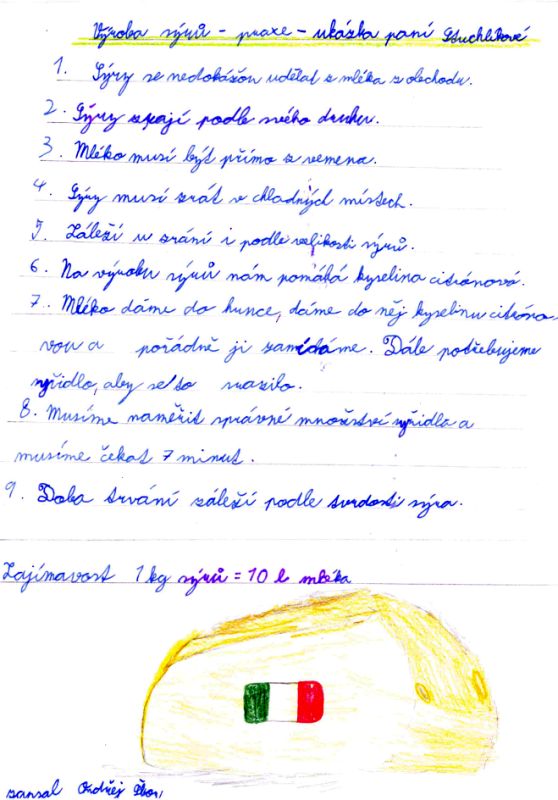 Výroba sýrů - praxe - ukázka paní Stuchlíkové
1. Sýry se nedokážou udělat z mléka z obchodu.
2. Sýry zrají podle svého druhu.
3. Mléko musí být přímo z vemena.
4. Sýry musí zrát v chladných místech.
5. Záleží u zrání i podle velikosti sýrů.
6. Na výrobu sýrů nám pomáhá kyselina citrónová.
7. Mléko dáme do hrnce, dáme do něj kyselinu citróno-
vou a pořádně ji zamícháme. Dále potřebujeme
syřidlo, aby se to srazilo.
8. Musíme naměřit správné množství syřidla a
musíme čekat 7 minut.
9. Doba trvání záleží podle tvrdosti sýra.
Zajímavost 1 kg sýrů = 10 l mléka
zapsal Ondřej